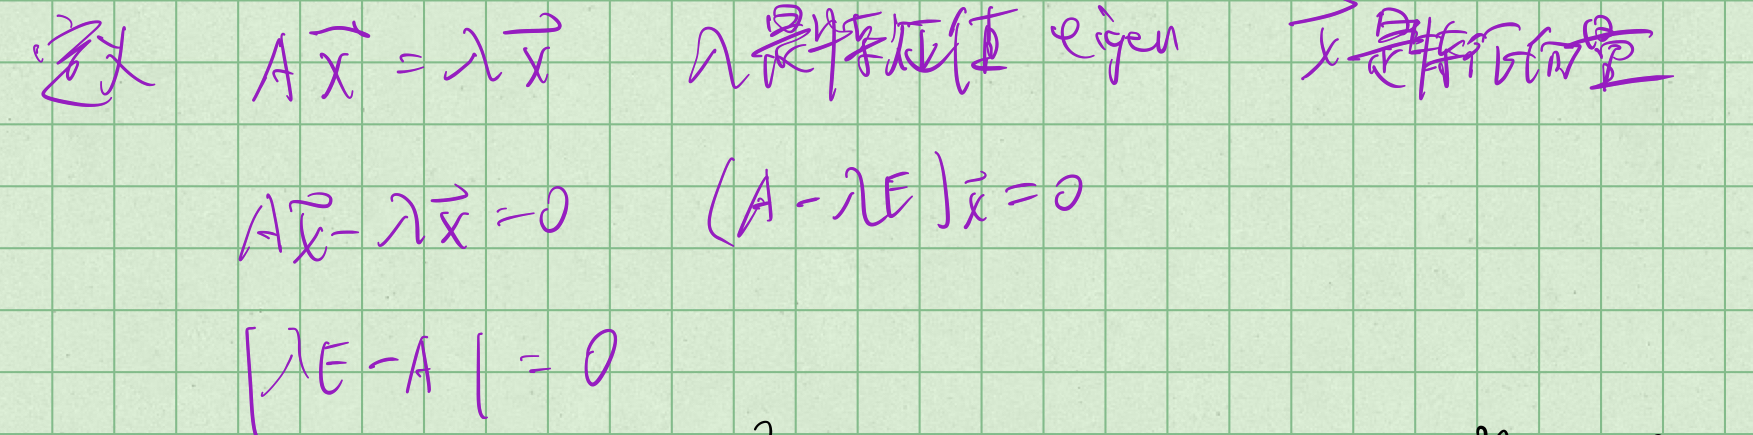 定义 A\vec{x} = λ\vec{x} λ是特征值 eigen \vec{x}是特征向量
A\vec{x} - λ\vec{x} = 0 (A - λE)\vec{x} = 0
|λE - A| = 0